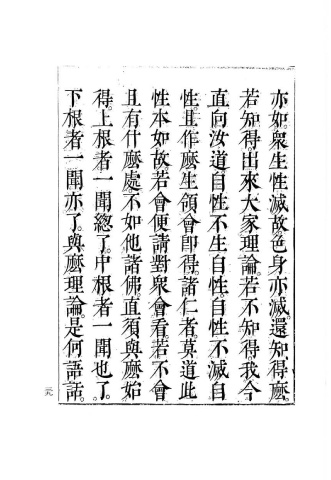 亦如。衆生性滅。故色身亦滅。還知得麽。
若知得。出來大家理論。若不知得。我今
直向汝道。自性不生。自性不滅。自
性。且作麽生領會卽得。諸仁者。莫道此
性本如故。若會便請對衆會看。若不會
且有什麽處不如他諸佛。直須與麽始
得。上根者一聞總了。中根者一聞也了。
下根者一聞亦了。與麽理論。是何語話。